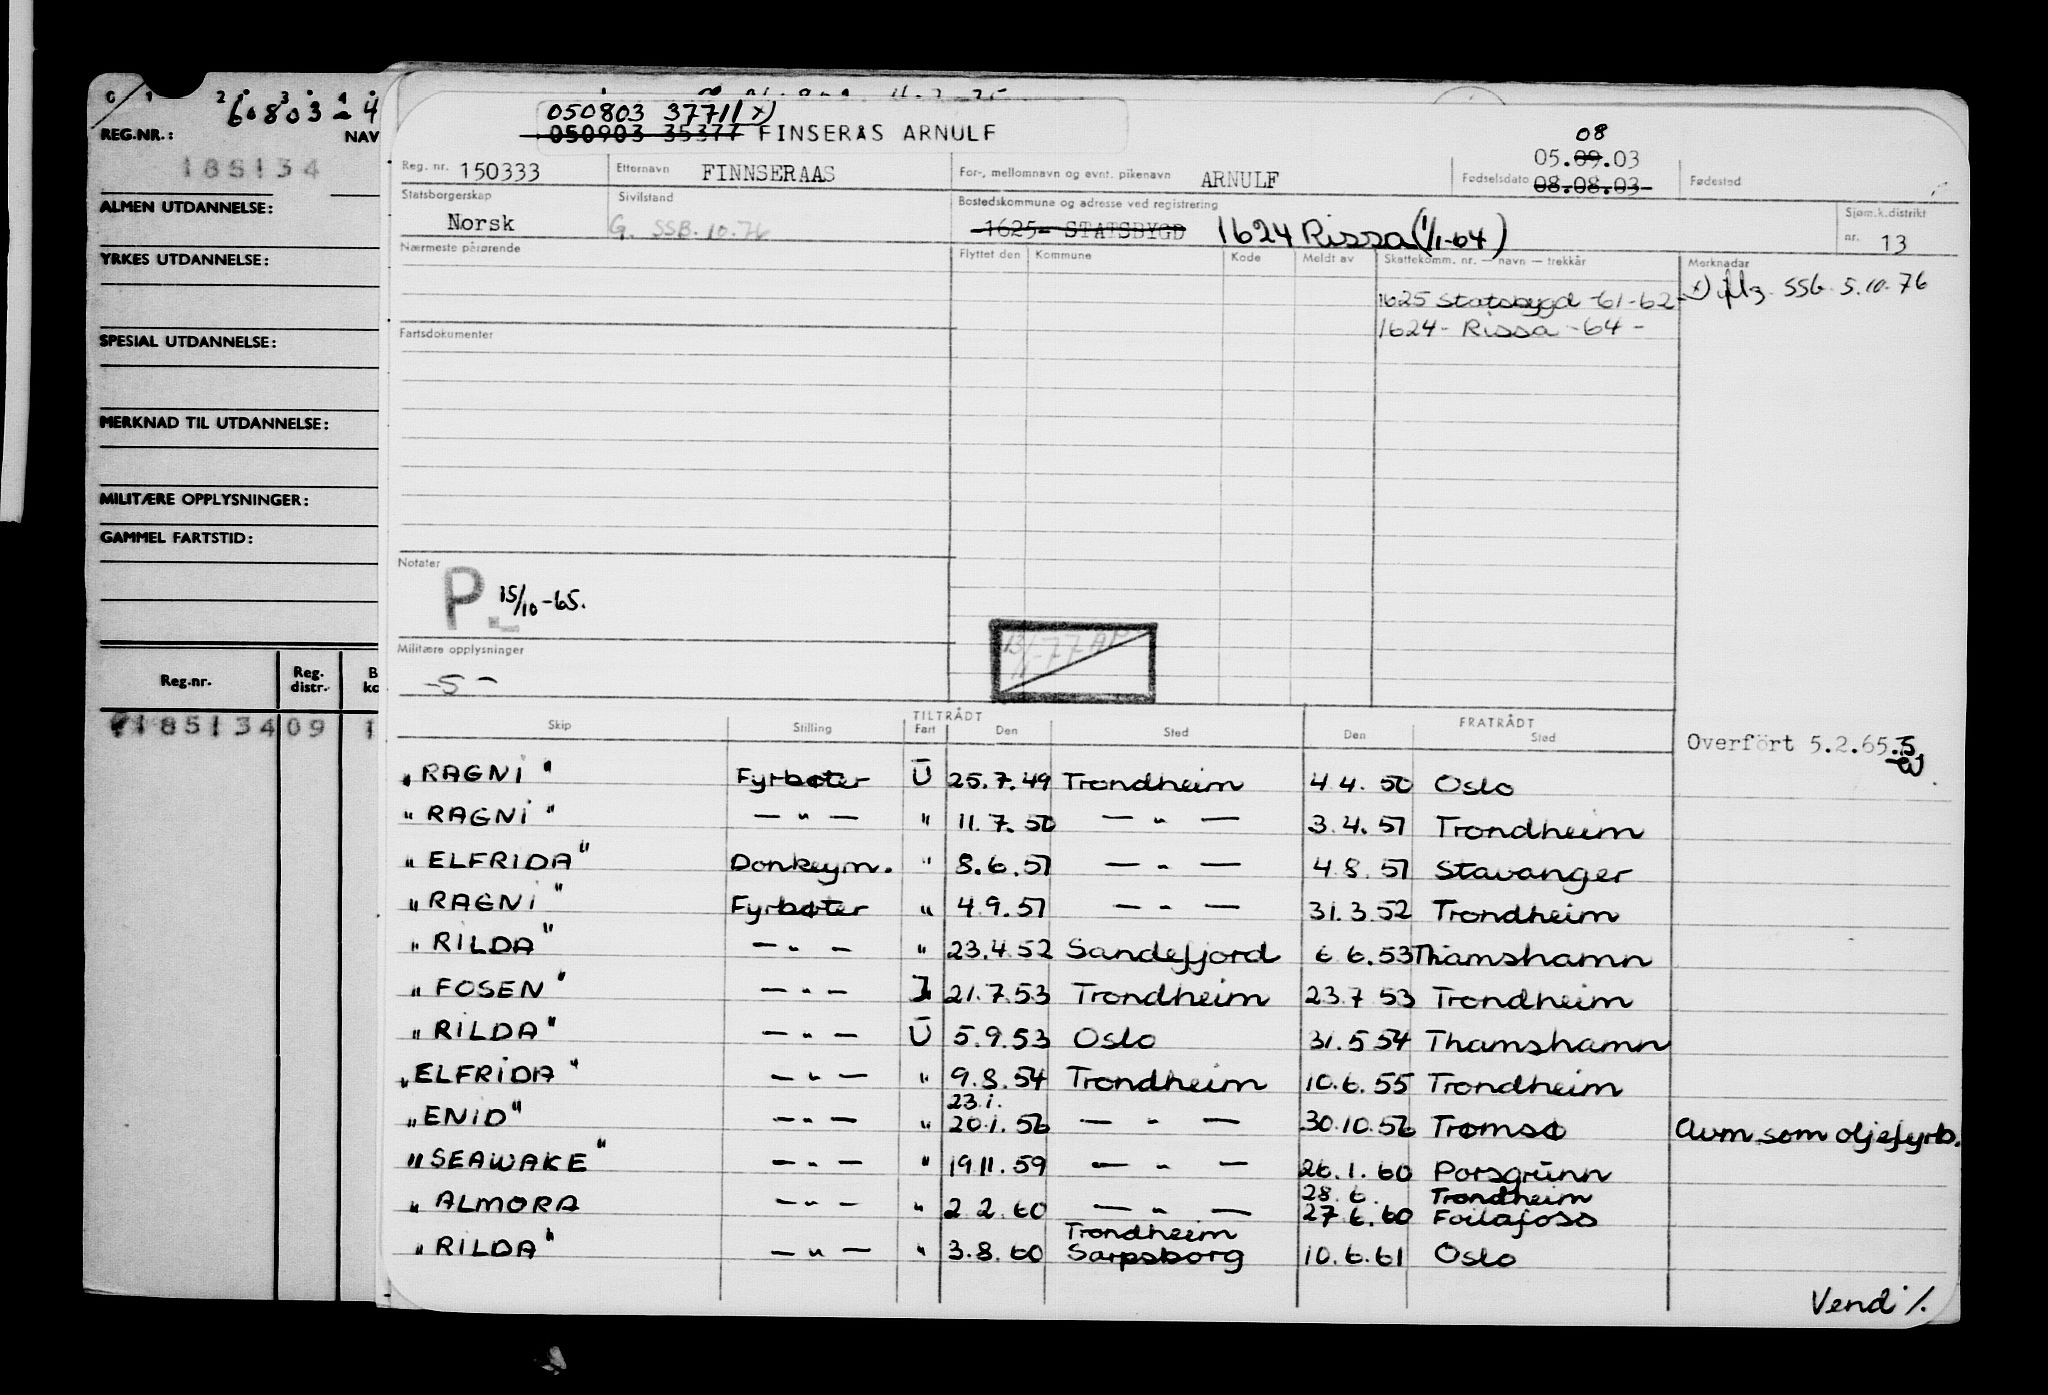 0 1 2 3 4
60803-4
REG.NR.: NAV
185134
ALMEN UTDANNELSE:
YRKES UTDANNELSE:
SPESIAL UTDANNELSE:
MERKNAD TIL UTDANNELSE:
MILITÆRE OPPLYSNINGER:
GAMMEL FARTSTID:
Reg.nr. Reg. distr. B ko
185134 09 1
050803 37711 x)
050903 35377 FINSERÅS ARNULF
08
05.09.03
Reg. nr. 150333 Etternavn FINNSERAAS For-, mellomnavn og evnt. pikenavn ARNULF Fødselsdato 08.08.03- Fødested
Statsborgerskap Sivilstand Bostedskommune og adresse ved registrering Sjøm.k.distrikt
Norsk G. SSB. 10.76 1625- STATSBYGD 1624 Rissa (1/1-64) nr. 13
Nærmeste pårørende Flyttet den Kommune Kode Meldt av Skattekomm. nr. — navn — trekkår Merknader
1625 Statsbygd -61-62- x) SSB 5.10.76
1624- Rissa -64-
Fartsdokumenter
Notater
P 15/10-65.
77
Militære opplysninger
-5-
TILTRÅDT FRATRÅDT
Skip Stilling Fart Den Sted Den Sted
Overført 5.2.65.
"RAGNI" Fyrbøter U 25.7.49 Trondheim 4.4.50 Oslo
"RAGNI" — " — " 11.7.50 — " — 3.4.51 Trondheim
"ELFRIDA" Donkeym. " 8.6.51 — " — 4.8.51 Stavanger
"RAGNI" Fyrbøter " 4.9.51 — " — 31.3.52 Trondheim
"RILDA" — " — " 23.4.52 Sandefjord 6.6.53 Thamshamn
"FOSEN" — " — I 21.7.53 Trondheim 23.7.53 Trondheim
"RILDA" — " — U 5.9.53 Oslo 31.5.54 Thamshamn
"ELFRIDA" — " — " 9.8.54 Trondheim 10.6.55 Trondheim
23.1.
"ENID" — " — " 20.1.56 — " — 30.10.56 Tromsø Avm som oljefyrb.
"SEAWAKE" — " — " 19.11.59 — " — 26.1.60 Porsgrunn
28.6. Trondheim
" ALMORA — " — " 2.2.60 — " — 27.6.60 Foilafoss
Trondheim
"RILDA" — " — " 3.8.60 Sarpsborg 10.6.61 Oslo
Vend %.